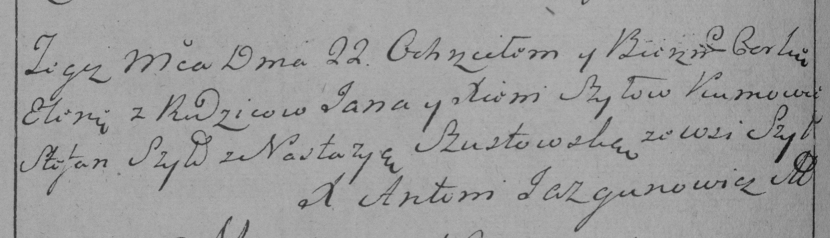 Tegoż Mca Dnia 22. Ochrzciłem y Bierzm Corkę
Elenę z Rodzicow Jana y Xieni Szyłow Kumowie
Stefan Szyło z Nastazyą Szustowską ze wsi Szył
X Antoni Jazgunowicz